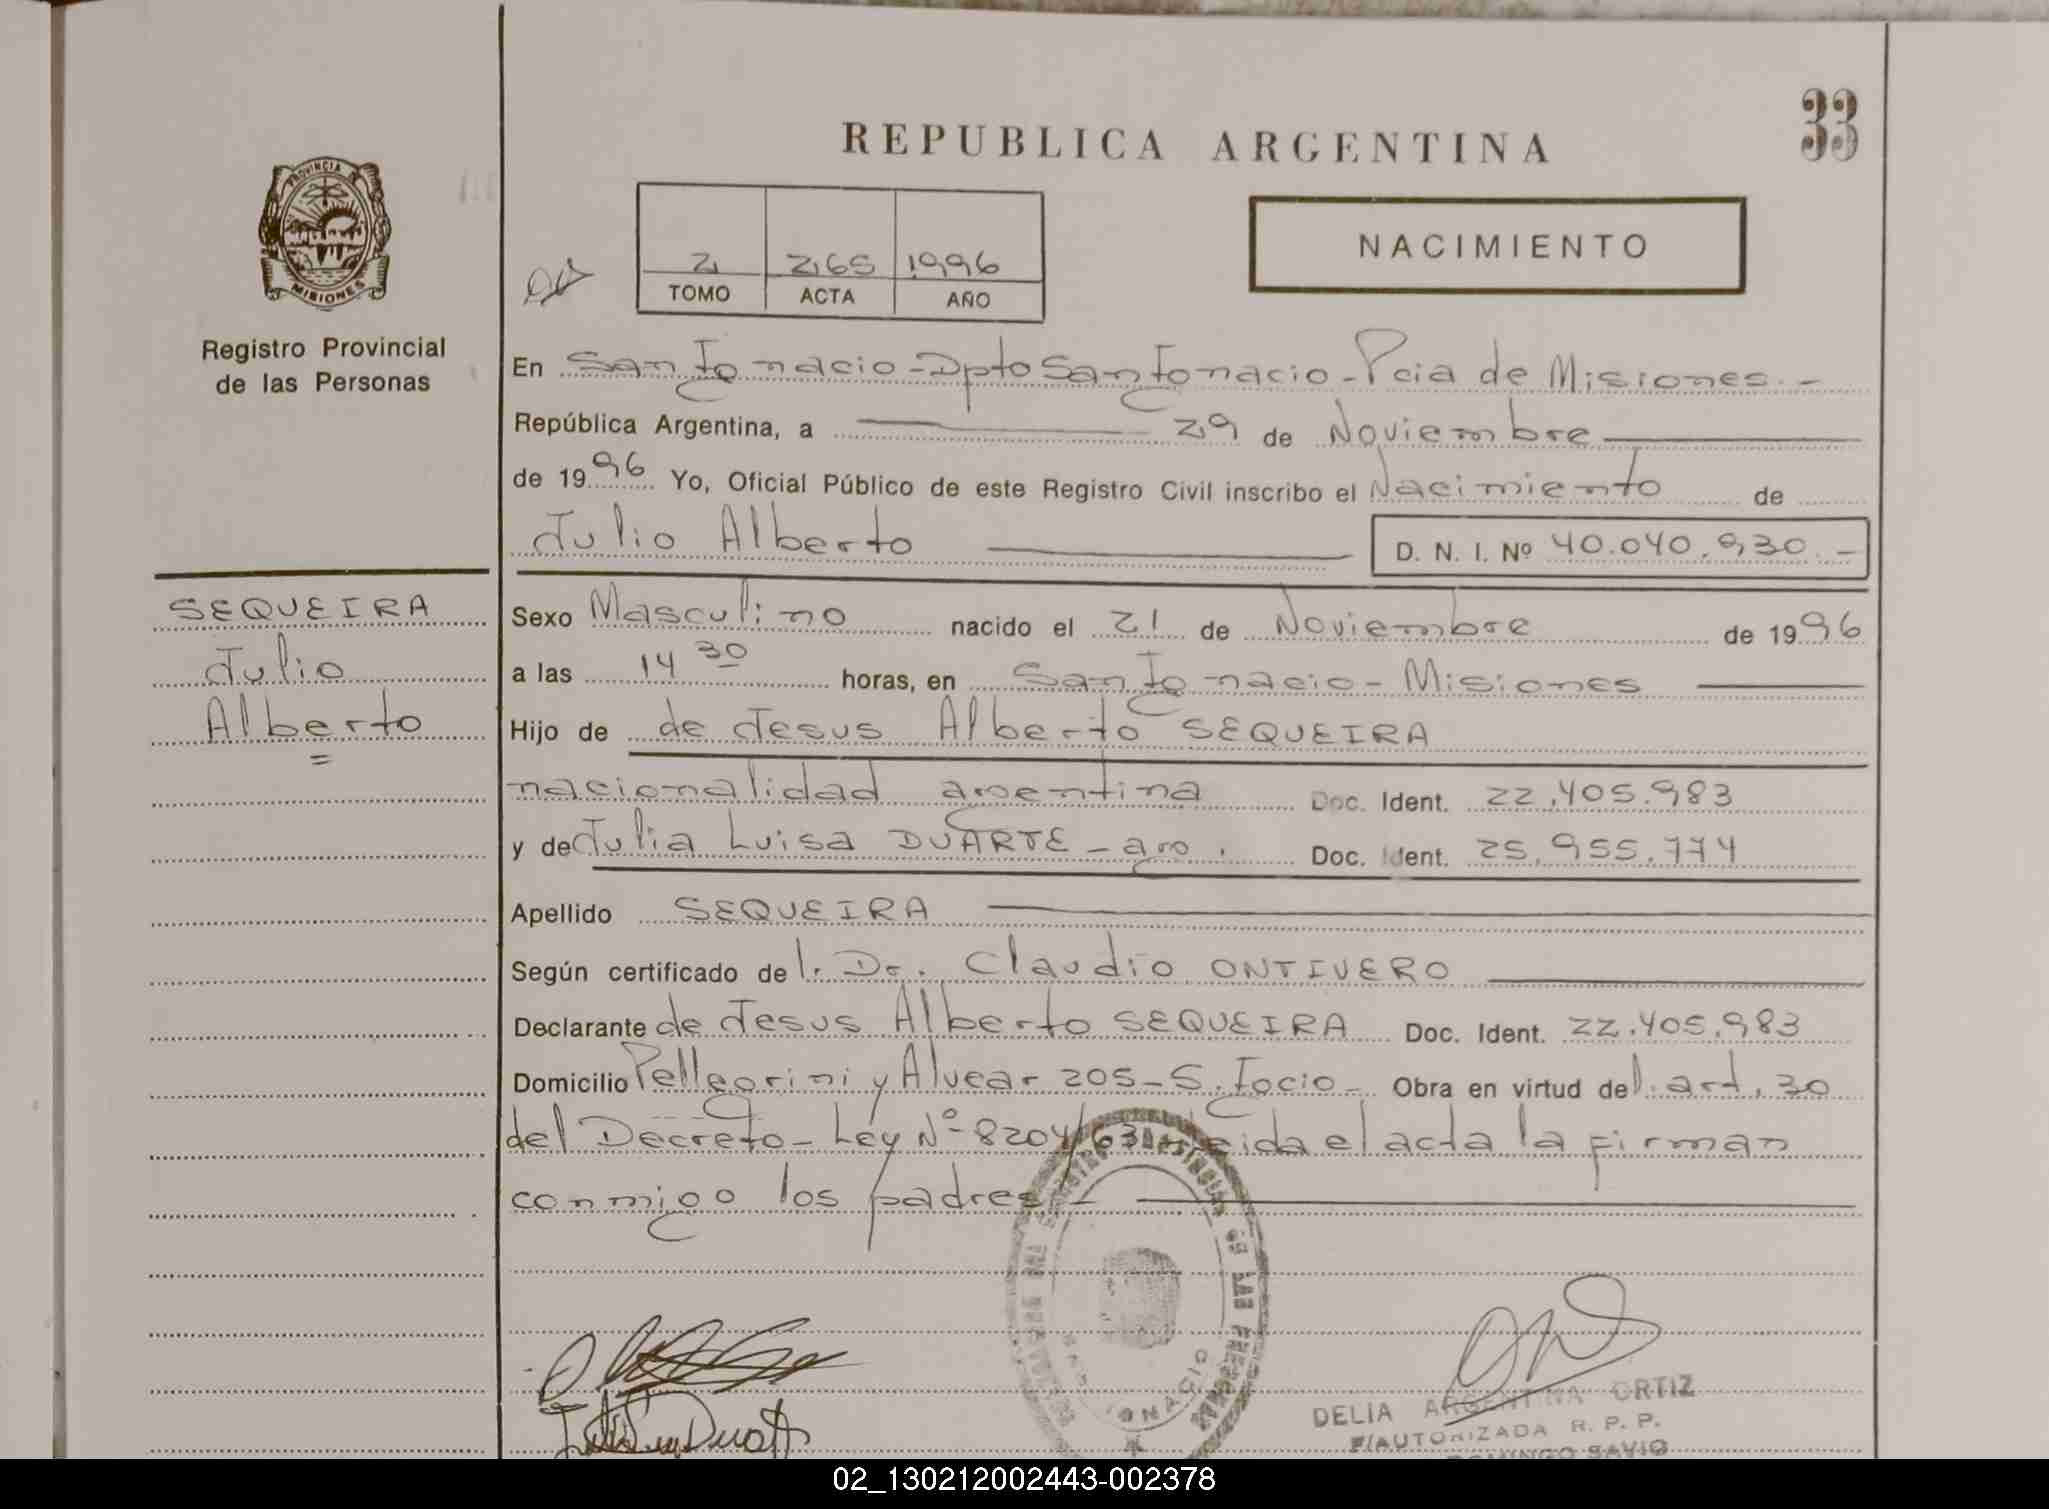 33
REPUBLICA ARGENTINA
PROVINCIA DE
MISIONES
Registro Provincial
de las Personas
2 265 1996
TOMO ACTA AÑO
NACIMIENTO
En San Ignacio - Dpto San Ignacio - Pcia de Misiones. -
República Argentina, a 29 de Noviembre
de 1996 Yo, Oficial Público de este Registro Civil inscribo el Nacimiento de
Julio Alberto D. N. I. Nº 40.040.930. -
SEQUEIRA
Julio
Alberto
Sexo Masculino nacido el 21 de Noviembre de 1996
a las 14 30 horas, en San Ignacio - Misiones
Hijo de de Jesus Alberto SEQUEIRA
nacionalidad argentina Doc. Ident. 22.405.983
y de Julia Luisa DUARTE - arg. Doc. Ident. 25.955.774
Apellido SEQUEIRA
Según certificado de l. Dr. Claudio ONTIVERO
Declarante de Jesus Alberto SEQUEIRA Doc. Ident. 22.405.983
Domicilio Pellegrini y Alvear 205 - S. Igcio - Obra en virtud de l. art. 30
del Decreto - Ley Nº 8204/63 - Leida el acta la firman
conmigo los padres -
DELIA ARGENTINA ORTIZ
F/AUTORIZADA R. P. P.
DOMINGO SAVIO
02_130212002443-002378